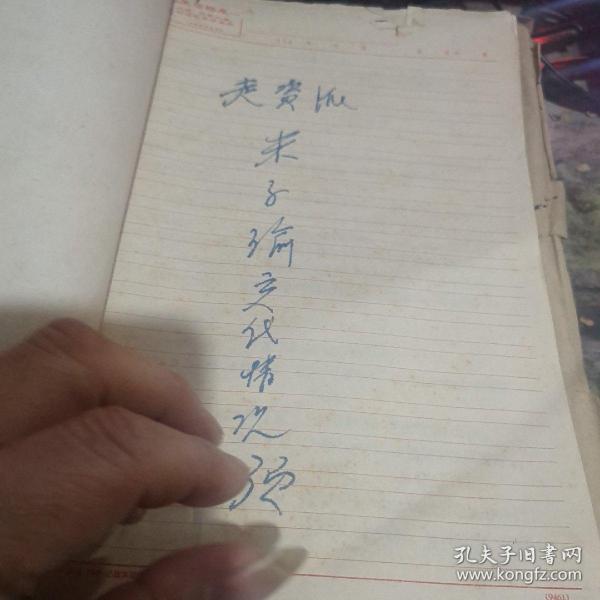 走资派
朱子瑜交代情况
孔夫子旧书网
www.kongfz.com